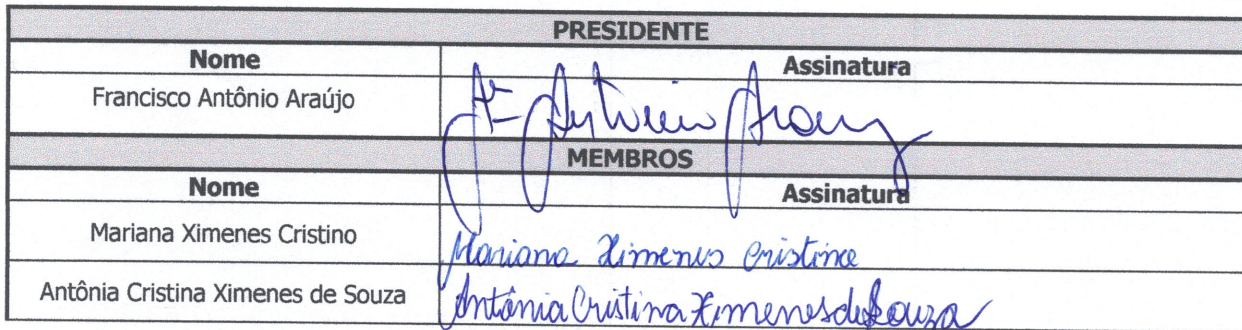 PRESIDENTE
Nome Assinatura
Francisco Antônio Araújo Fco Antonio Araujo
MEMBROS
Nome Assinatura
Mariana Ximenes Cristino Mariana Ximenes Cristino
Antônia Cristina Ximenes de Souza Antônia Cristina Ximenes de Souza